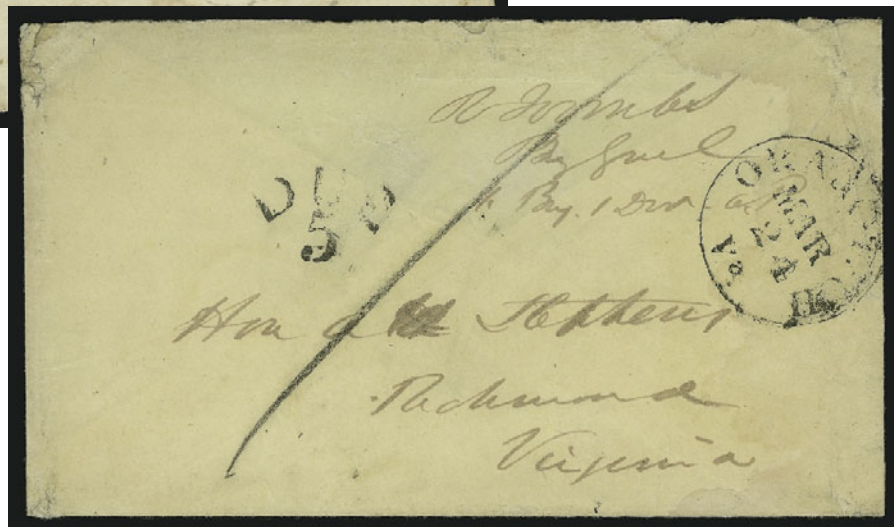 R Toombs
Brig Genl
1 Brig. 1 Div.
DUE
5
ORANGE C.H.
MAR
24
Va.
Hon A H Stephens
Richmond
Virginia